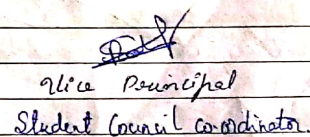 Vice Principal
Student Council co-ordinator.